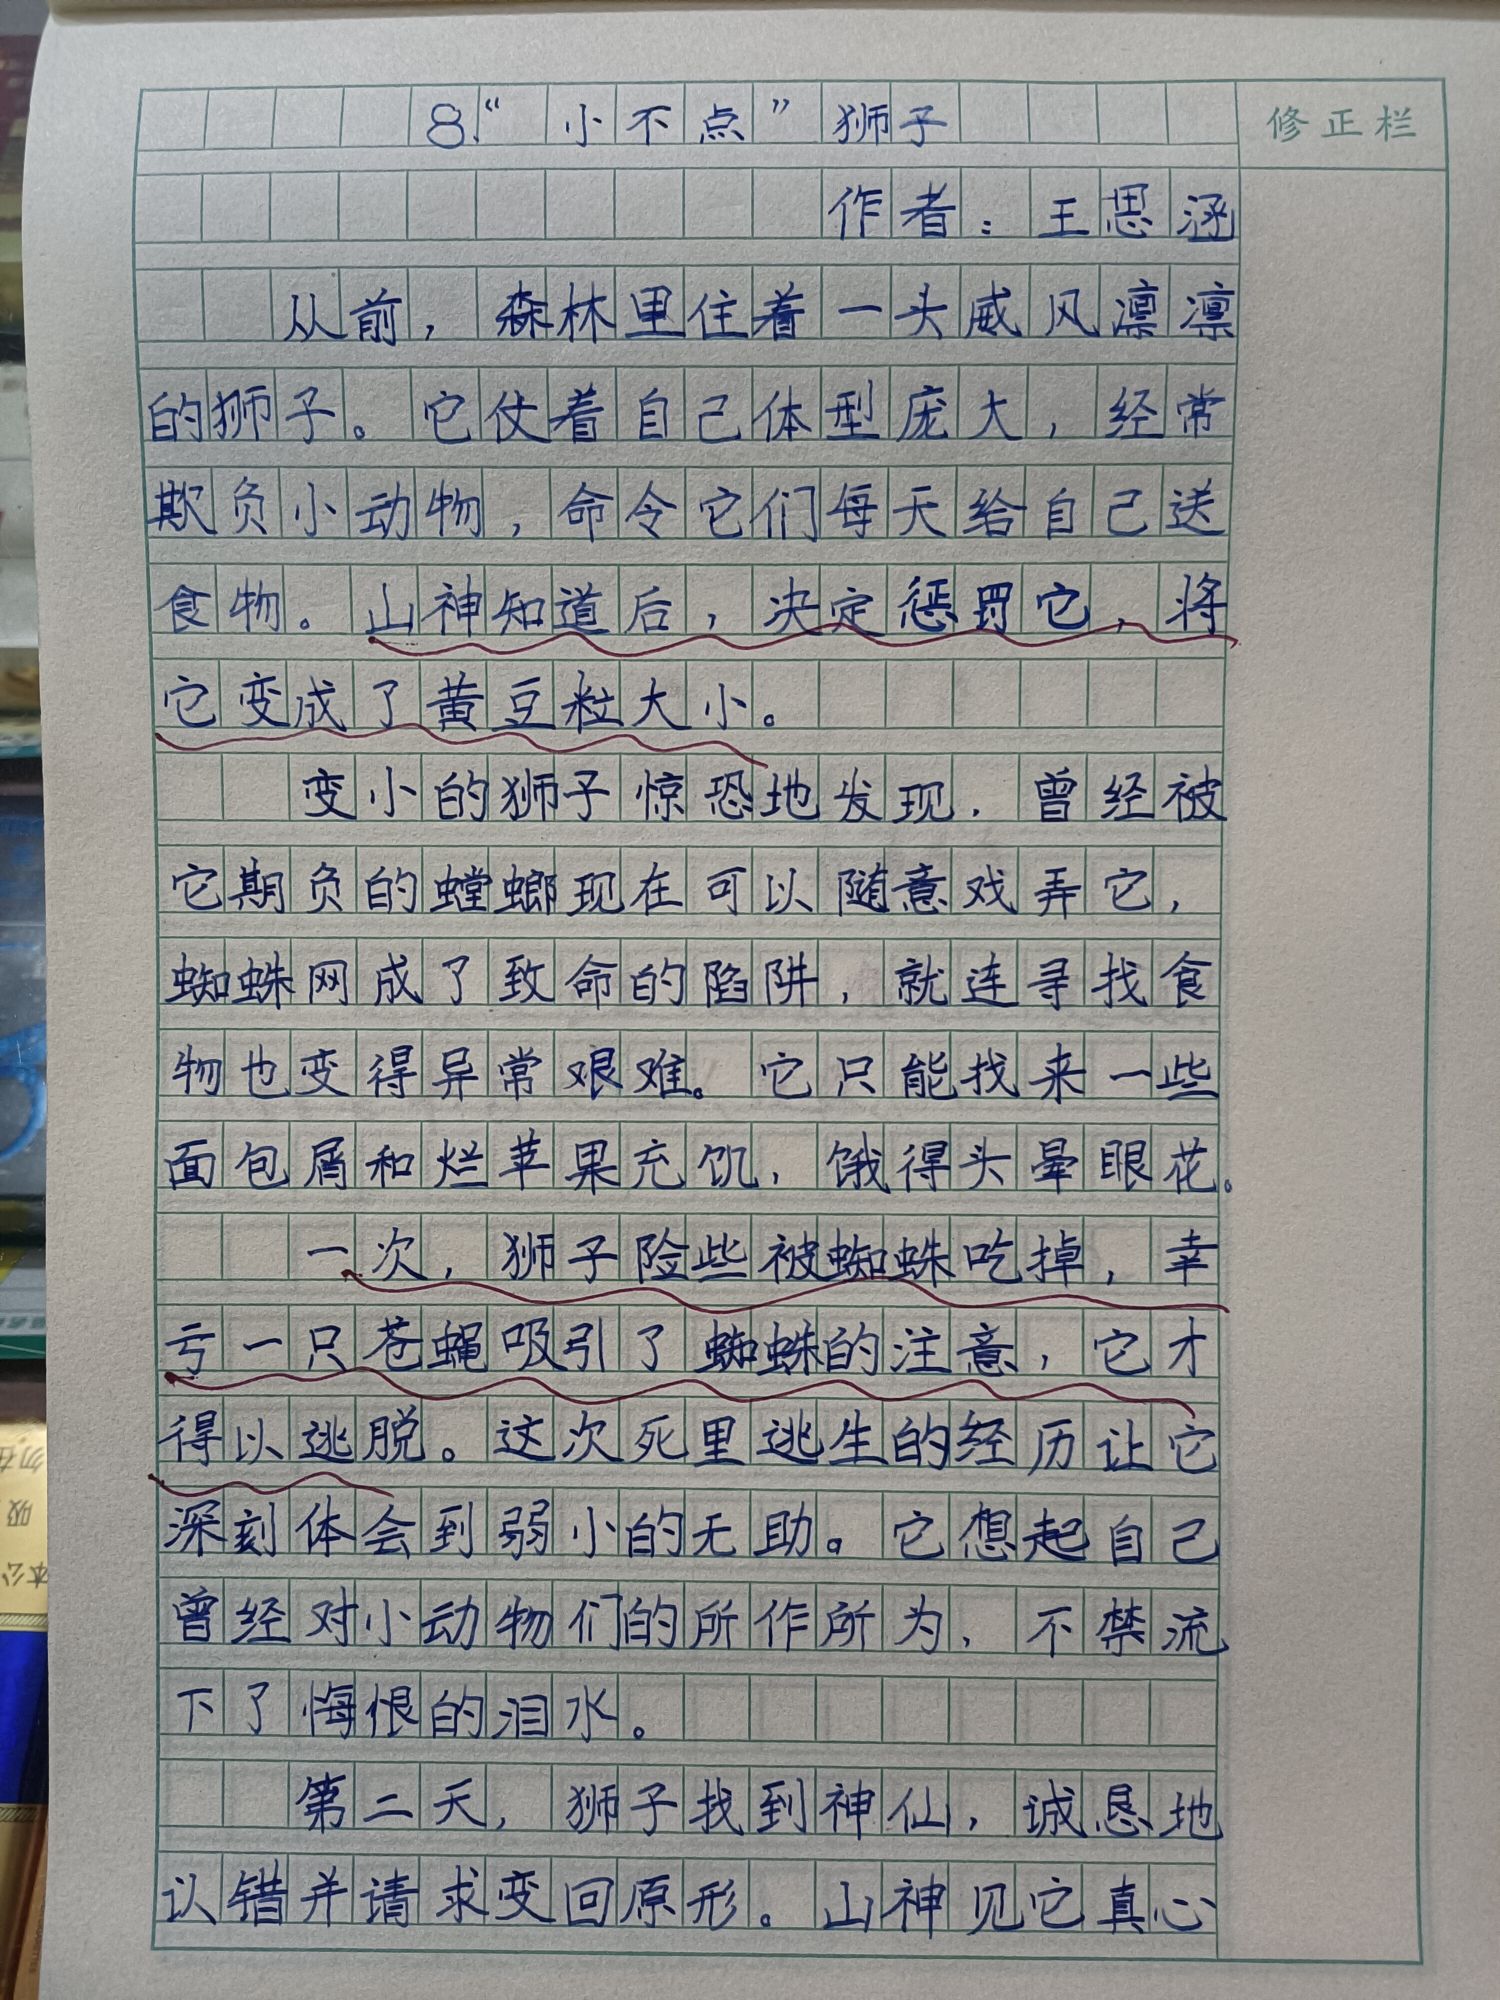 8.“小不点”狮子
修正栏
作者：王思涵
从前，森林里住着一头威风凛凛
的狮子。它仗着自己体型庞大，经常
欺负小动物，命令它们每天给自己送
食物。山神知道后，决定惩罚它，将
它变成了黄豆粒大小。
变小的狮子惊恐地发现，曾经被
它期负的螳螂现在可以随意戏弄它，
蜘蛛网成了致命的陷阱，就连寻找食
物也变得异常艰难。它只能找来一些
面包屑和烂苹果充饥，饿得头晕眼花。
一次，狮子险些被蜘蛛吃掉，幸
亏一只苍蝇吸引了蜘蛛的注意，它才
得以逃脱。这次死里逃生的经历让它
深刻体会到弱小的无助。它想起自己
曾经对小动物们的所作所为，不禁流
下了悔恨的泪水。
第二天，狮子找到神仙，诚恳地
认错并请求变回原形。山神见它真心